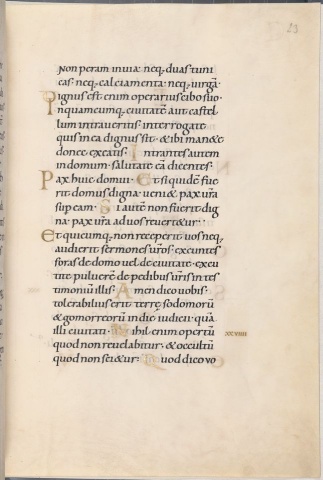 23
Non peram in uia neq; duas tuni
cas· neq; calciamenta· neq; uirgā·
Dignus est enim operarius cibo suo·
Inquamcumq; ciuitatē aut castel
lum intraueritis· interrogate
quis in ea dignus sit· & ibi man&e
donec exeatis· Intrantes autem
in domum· salutate eā dicentes·
Pax huic domui· Et siquidē fue
rit domus digna· ueni& pax urā
sup eam· Si autē non fuerit dig
na· pax urā ad uos reuert&ur·
Et quicumq; non receperit uos neq;
audierit sermones urōs· exeuntes
foras de domo uel de ciuitate· excu
tite puluerē de pedibus uris in tes
timoniū illis· Amen dico uobis·
tolerabilius erit terrę sodomorū
& gomorreorū in die iudicii quā
illi ciuitati· Nihil enim opertū
quod non reuelabitur· & occultū
quod non sci&ur· Quod dico uo